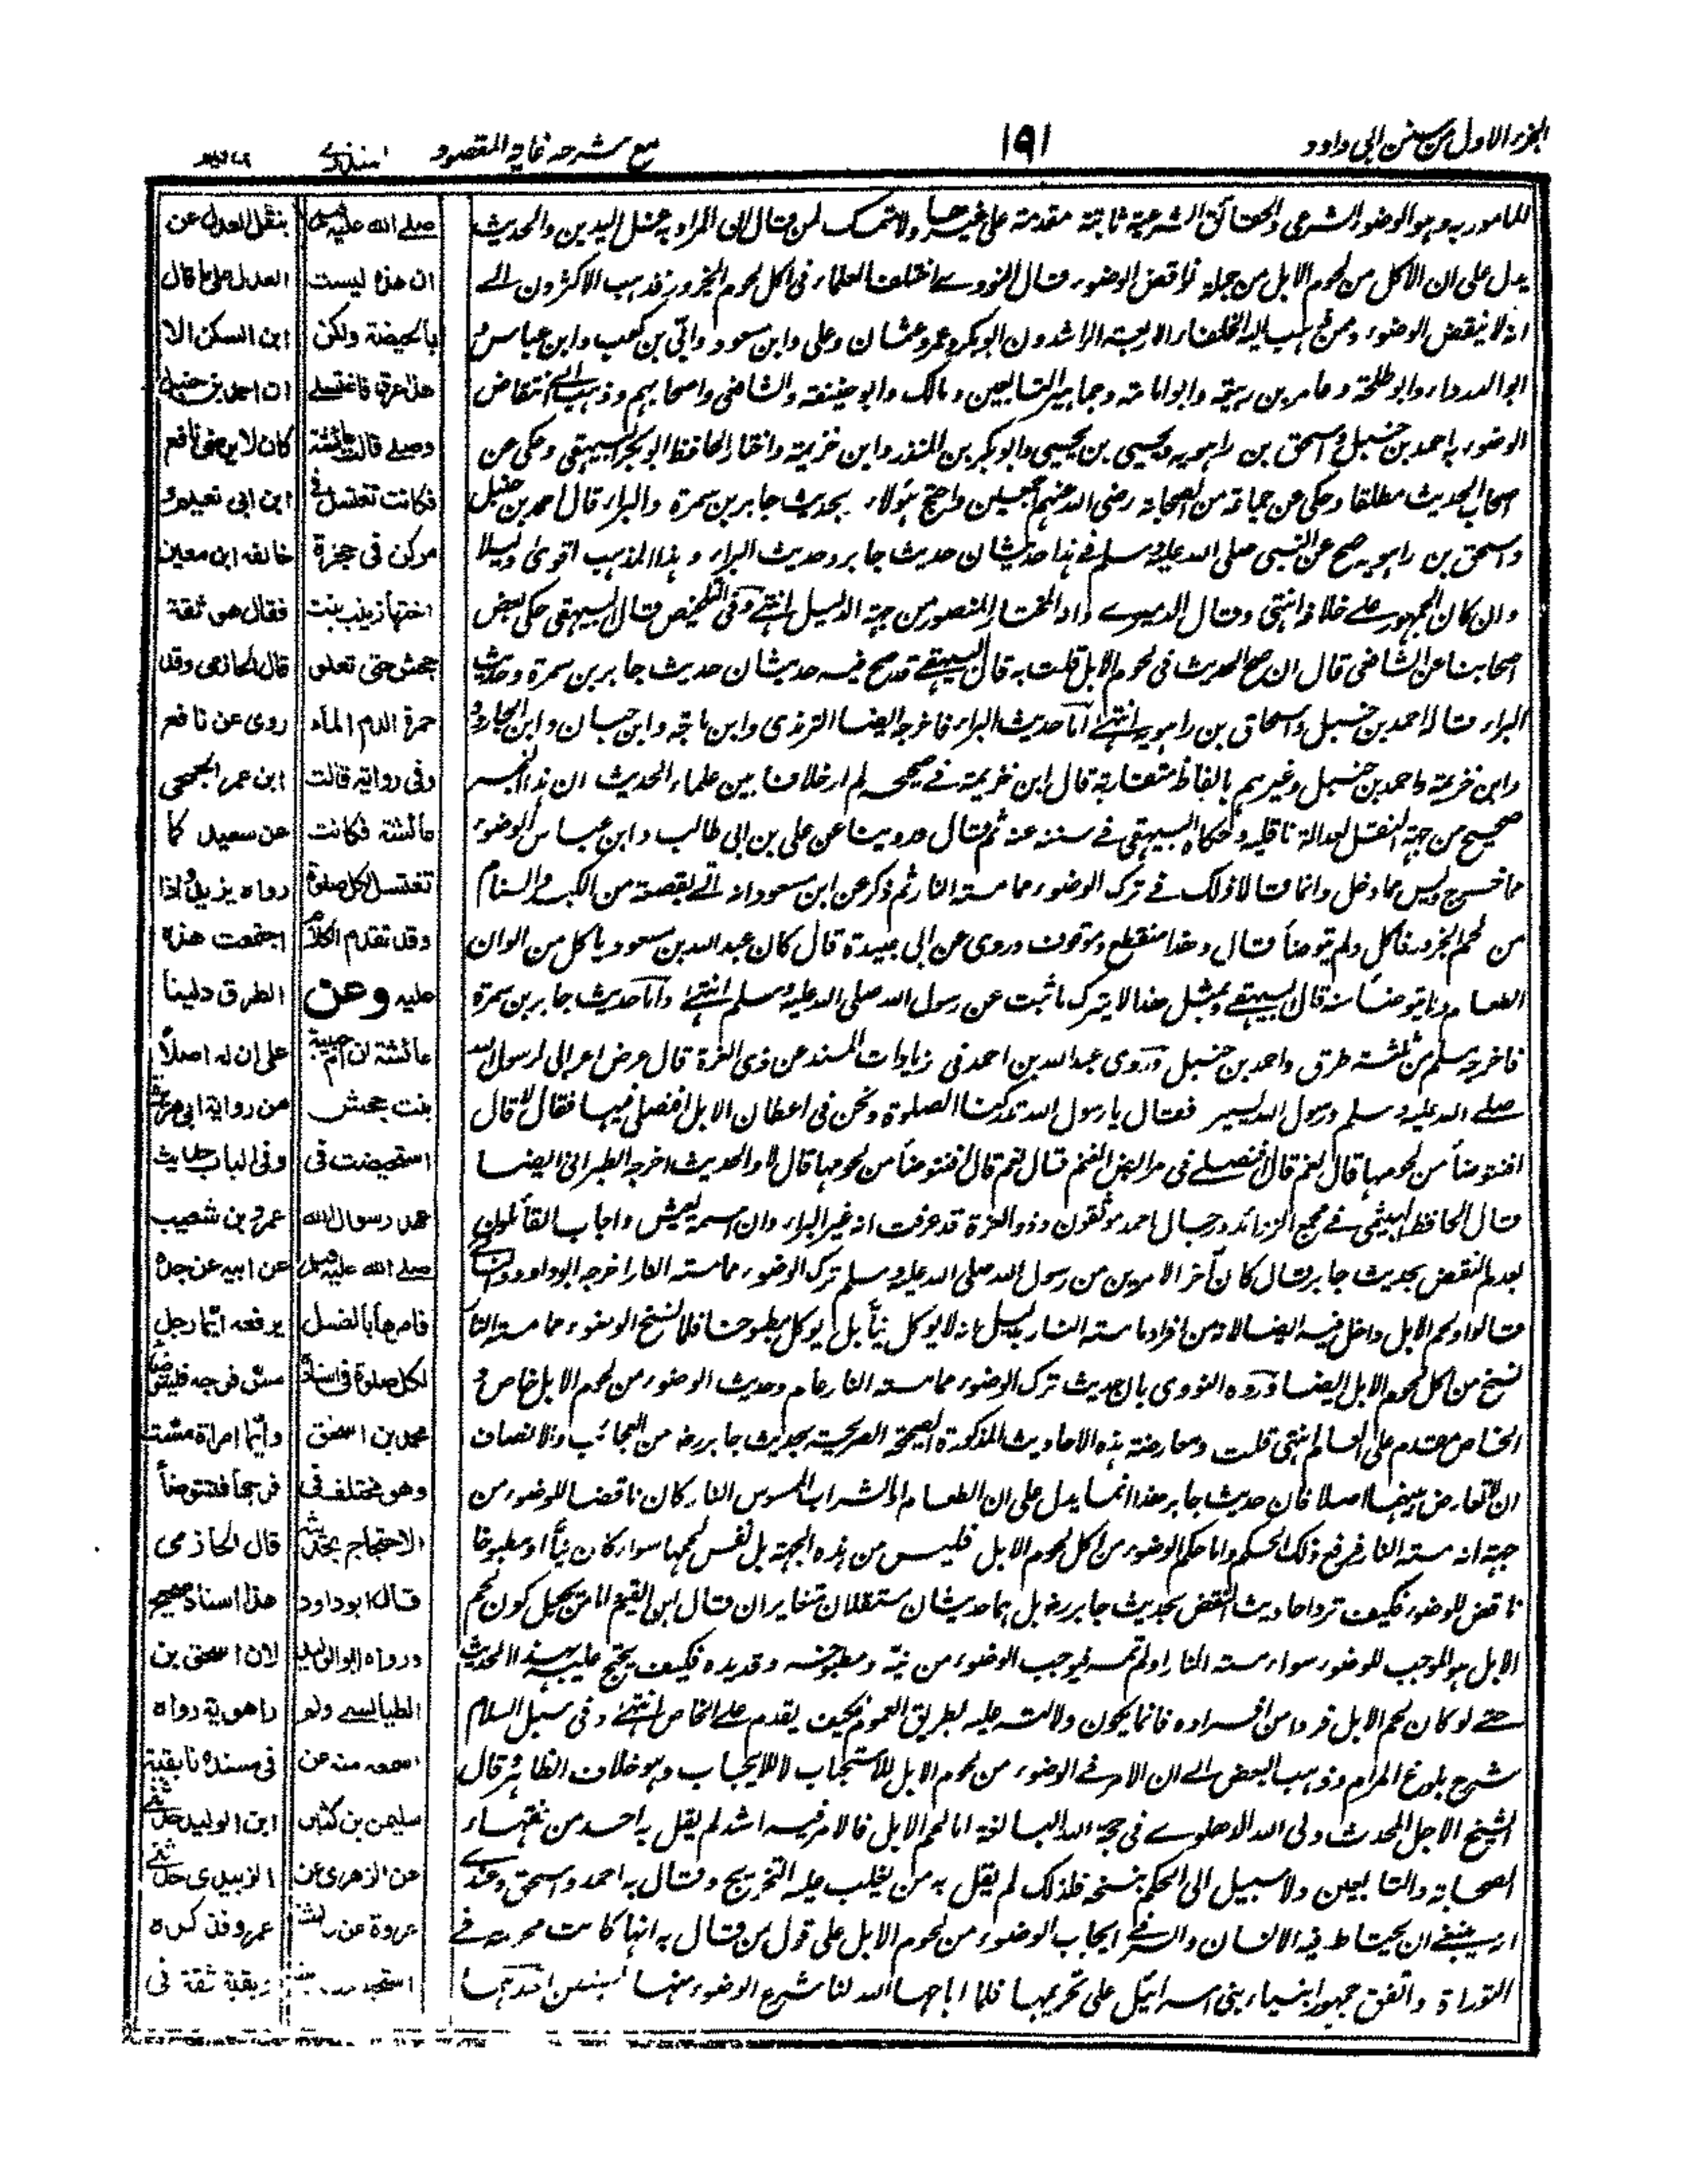 الجزء الاول من سنن ابى داود
١٩١
مع شرحه غاية المقصود
للمامور به وهو الوضوء الشرعى والحقائق الشرعية ثابتة مقدمة على غيرها ولا تمسك لمن قال ان المراد به غسل اليدين والحديث
يدل على ان الاكل من لحوم الابل من جملة نواقض الوضوء قال النووى اختلف العلماء فى اكل لحوم الجزور فذهب الاكثرون الى
انه لا ينقض الوضوء وممن ذهب اليه الخلفاء الاربعة الراشدون ابو بكر وعمر وعثمان وعلى وابن مسعود وابى بن كعب وابن عباس و
ابو الدرداء وابو طلحة وعامر بن ربيعة وابو امامة وجماهير التابعين ومالك وابو حنيفة والشافعى واصحابهم وذهب الى انتقاض
الوضوء به احمد بن حنبل واسحق بن راهويه ويحيى بن يحيى وابو بكر بن المنذر وابن خزيمة واختار الحافظ ابو بكر البيهقى وحكى عن
اصحاب الحديث مطلقا وحكى عن جماعة من الصحابة رضى الله عنهم اجمعين واحتج هؤلاء بحديث جابر بن سمرة والبراء قال احمد بن حنبل
واسحق بن راهويه صح عن النبى صلى الله عليه وسلم فى هذا حديثان حديث جابر وحديث البراء وهذا المذهب اقوى دليلا
وان كان الجمهور على خلافه انتهى وقال الدميرى وانه المختار المنصور من جهة الدليل انتهى وفى التلخيص قال البيهقى حكى بعض
اصحابنا عن الشافعى قال ان صح الحديث فى لحوم الابل قلت به قال البيهقى قد صح فيه حديثان حديث جابر بن سمرة وحديث
البراء قاله احمد بن حنبل واسحاق بن راهويه انتهى اما حديث البراء فاخرجه ايضا الترمذى وابن ماجة وابن حبان وابن الجارود
وابن خزيمة واحمد بن حنبل وغيرهم بالفاظ متقاربة قال ابن خزيمة فى صحيحه لم ار خلافا بين علماء الحديث ان هذا الخبر
صحيح من جهة النقل لعدالة ناقليه وحكاه البيهقى فى سننه عنه ثم قال وروينا عن على بن ابى طالب وابن عباس الوضوء
مما خرج وليس مما دخل وانما قالا ذلك فى ترك الوضوء مما مسته النار ثم ذكر عن ابن مسعود انه اتى بقصعة من الكبد والسنام
من لحم الجزور فاكل ولم يتوضأ قال وهذا منقطع وموقوف وروى عن ابى عبيدة قال كان عبد الله بن مسعود ياكل من الوان
الطعام ولا يتوضأ منه قال البيهقى وبمثل هذا لا يترك ما ثبت عن رسول الله صلى الله عليه وسلم انتهى واما حديث جابر بن سمرة
فاخرجه مسلم من ثلثة طرق واحمد بن حنبل وروى عبد الله بن احمد فى زيادات المسند عن ذى الغرة قال عرض اعرابى لرسول الله
صلى الله عليه وسلم ورسول الله يسير فقال يا رسول الله تدركنا الصلوة ونحن فى اعطان الابل افنصلى فيها فقال لا قال
افنتوضأ من لحومها قال نعم قال افنصلى فى مرابض الغنم قال نعم قال افنتوضأ من لحومها قال لا والحديث اخرجه الطبرانى ايضا
قال الحافظ الهيثمى فى مجمع الزوائد ورجال احمد موثقون وذو الغرة قد عرفت انه غير البراء وان اسمه يعيش واجاب القائلون
بعدم النقض بحديث جابر قال كان آخر الامرين من رسول الله صلى الله عليه وسلم ترك الوضوء مما مسته النار اخرجه ابو داود والنسائى
قالوا ولحم الابل داخل فيه ايضا لانه من افراد ما مسته النار بدليل انه لا يوكل نيأ بل يوكل مطبوخا فلما نسخ الوضوء مما مسته النار
نسخ من اكل لحوم الابل ايضا ورده النووى بان حديث ترك الوضوء مما مسته النار عام وحديث الوضوء من لحوم الابل خاص و
الخاص مقدم على العام انتهى قلت ومعارضة هذه الاحاديث المذكورة الصحيحة الصريحة بحديث جابر رضـ من العجائب والانصاف
ان لا تعارض بينهما اصلا فان حديث جابر هذا انما يدل على ان الطعام او الشراب الممسوس النار كان ناقضا للوضوء من
جهة انه مسته النار فرفع ذلك الحكم واما حكم الوضوء من اكل لحوم الابل فليس من هذه الجهة بل نفس لحمها سواء كان نيأ او مطبوخا
ناقض للوضوء فكيف ترد احاديث النقض بحديث جابر رضـ بل هما حديثان مستقلان متغايران قال ابن القيم اما من يجعل كون لحم
الابل هو الموجب للوضوء سواء مسته النار او لم تمسه فيوجب الوضوء من نيه ومطبوخه وقديده فكيف يحتج عليه بهذا الحديث
حتى لو كان لحم الابل فردا من افراده فانما يكون دلالته عليه بطريق العموم فكيف يقدم على الخاص انتهى وفى سبل السلام
شرح بلوغ المرام وذهب البعض الى ان الامر فى الوضوء من لحوم الابل للاستحباب لا للايجاب وهو خلاف الظاهر قال
الشيخ الاجل المحدث ولى الله الدهلوى فى حجة الله البالغة اما لحم الابل فالامر فيه اشد لم يقل به احد من فقهاء
الصحابة والتابعين ولا سبيل الى الحكم بنسخه فلذلك لم يقل به من يغلب عليه التخريج وقال به احمد واسحق وعندى
انه ينبغى ان يحتاط فيه الانسان والسر فى ايجاب الوضوء من لحوم الابل على قول من قال به انها كانت محرمة فى
التوراة واتفق جمهور انبياء بنى اسرائيل على تحريمها فلما اباحها الله لنا شرع الوضوء منها لمعنيين احدهما
صلى الله عليه وسلم
ان هذه ليست
بالحيضة ولكن
هذا عرق فاغتسلى
وصلى قالت عائشة
فكانت تغتسل فى
مركن فى حجرة
اختها زينب بنت
جحش حتى تعلو
حمرة الدم الماء
وفى رواية قالت
عائشة فكانت
تغتسل لكل صلوة
وقد تقدم الكلام
عليه وعن
عائشة ان ام حبيبة
بنت جحش
استحيضت فى
عهد رسول الله
صلى الله عليه وسلم
فامرها بالغسل
لكل صلوة فى اسناده
محمد بن اسحق
وهو مختلف فى
الاحتجاج بحديثه
قال ابو داود
ورواه ابو الوليد
الطيالسى ولم
اسمعه منه عن
سليمن بن كثير
عن الزهرى عن
عروة عن عائشة
بنقل العدل عن
العدل على ما قال
ابن السكن الا
ان احمد بن حنبل
كان لا يرضى نافع
ابن ابى نعيم و
خالفه ابن معين
فقال هو ثقة
قال الحازمى وقد
روى عن نافع
ابن عمر الجمحى
عن سعيد كما
رواه يزيد واذا
اجتمعت هذه
الطرق دلتنا
على ان له اصلاً
من رواية ابى هريرة
وفى الباب حديث
عمرو بن شعيب
عن ابيه عن جده
يرفعه ايما رجل
مس فرجه فليتوضأ
وايما امرأة مست
فرجها فتتوضأ
قال الحازمى
هذا اسناد صحيح
لان اسحق بن
راهوية رواه
فى مسنده نا بقية
ابن الوليد حدثنى
الزبيدى حدثنى
عمرو فذكره
وبقية ثقة فى